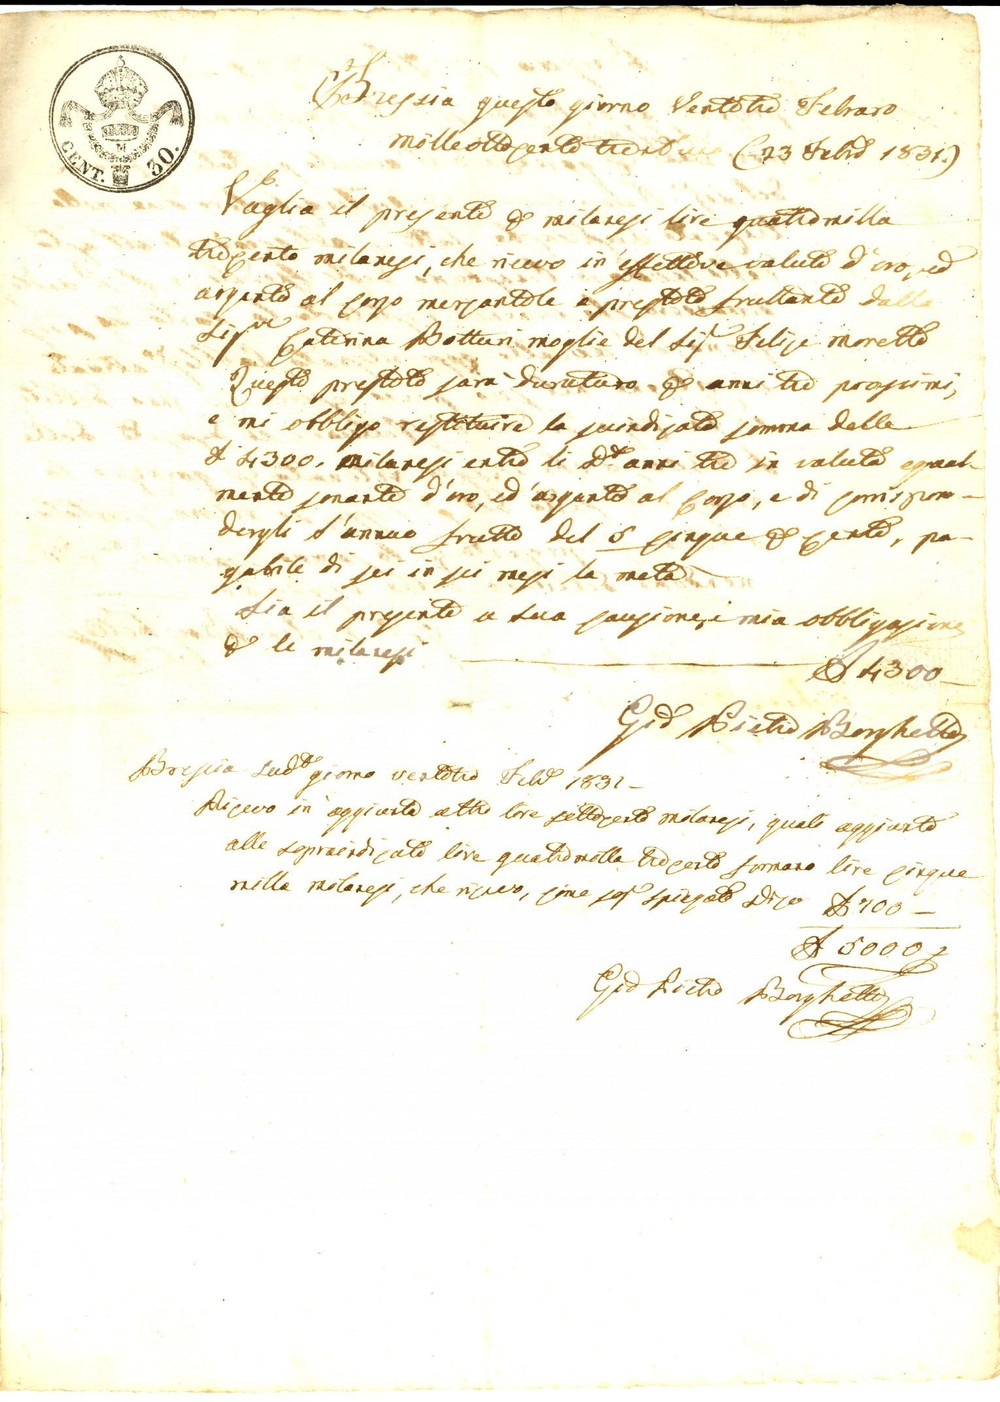 CENT. 30.
Brescia questo giorno Ventitre Febraro
milleottocento trentuno (23 Febro 1831.)
Vaglia il presente per milanesi lire quattromilla
trecento milanesi, che ricevo in effettive valute d'oro, ed
argento al corso mercantile a prestito fruttante dalla
Sigra Caterina Botturi moglie del Sigr Felice Moretti
Questo prestito sarà duraturo per anni tre prossimi,
e mi obbligo restituire la suindicata somma delle
£ 4300. milanesi entro li dti anni tre in valute egual-
mente sonanti d'oro, ed argento al corso, e di corrispon-
dergli l'annuo frutto del 5 cinque per cento, pa-
gabile di sei in sei mesi la metà
Sia il presente a sua cauzione, e mia obbligazione
per le milanesi £ 4300
Gio Pietro Borghetti
Brescia sudto giorno ventitre Febo 1831
Ricevo in aggiunta altre lire settecento milanesi, quali aggiunte
alle sopraindicate lire quattromilla trecento formano lire cinque
milla milanesi, che ricevo, come sopra spiegato dico £ 700
£ 5000
Gio Pietro Borghetti